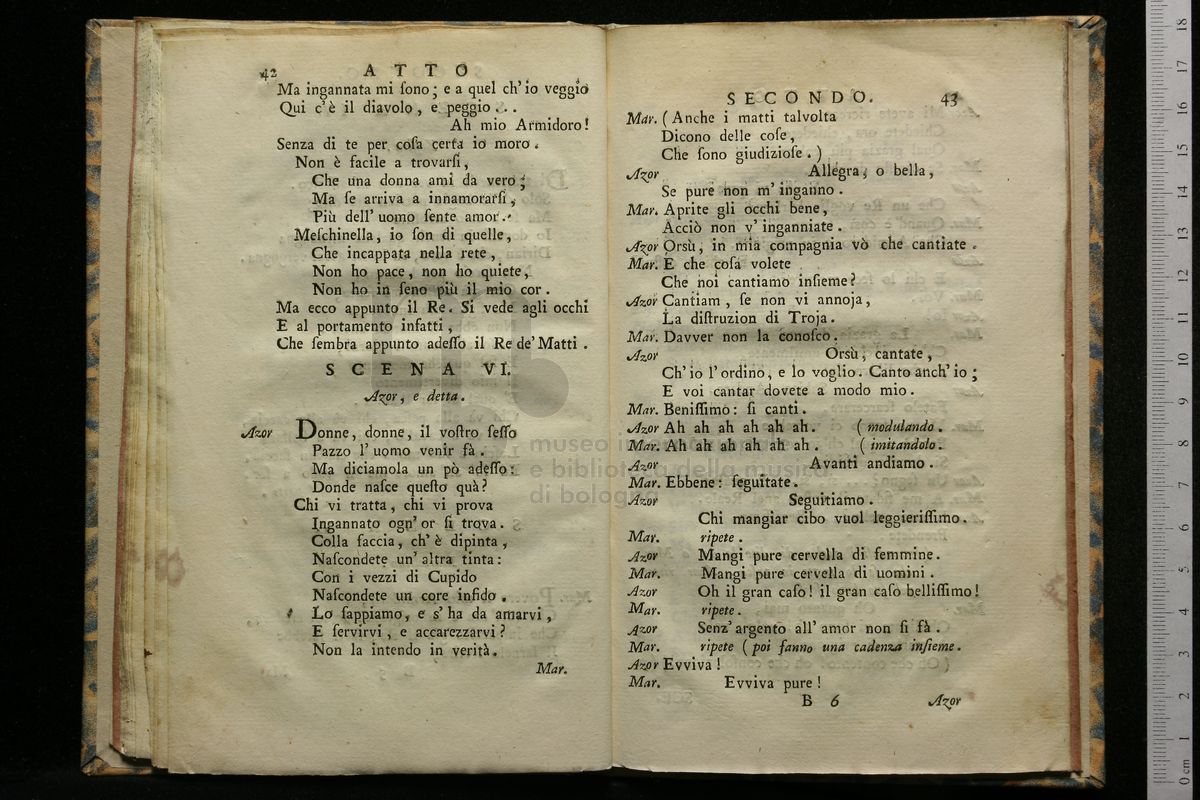 42 ATTO
Ma ingannata mi ſono; e a quel ch' io veggio
Qui c'è il diavolo, e peggio...
Ah mio Armidoro!
Senza di te per coſa certa io moro.
Non è facile a trovarſi,
Che una donna ami da vero;
Ma ſe arriva a innamorarſi,
Più dell' uomo ſente amor.
Meſchinella, io ſon di quelle,
Che incappata nella rete,
Non ho pace, non ho quiete,
Non ho in ſeno più il mio cor.
Ma ecco appunto il Re. Si vede agli occhi
E al portamento infatti,
Che ſembra appunto adeſſo il Re de' Matti.
SCENA VI.
Azor, e detta.
Azor Donne, donne, il voſtro ſeſſo
Pazzo l' uomo venir fà.
Ma diciamola un pò adeſſo:
Donde naſce queſto quà?
Chi vi tratta, chi vi prova
Ingannato ogn' or ſi trova.
Colla faccia, ch' è dipinta,
Naſcondete un' altra tinta:
Con i vezzi di Cupido
Naſcondete un core infido.
Lo ſappiamo, e s' ha da amarvi,
E ſervirvi, e accarezzarvi?
Non la intendo in verità.
Mar.
SECONDO. 43
Mar. (Anche i matti talvolta
Dicono delle coſe,
Che ſono giudizioſe.)
Azor Allegra, o bella,
Se pure non m' inganno.
Mar. Aprite gli occhi bene,
Acciò non v' inganniate.
Azor Orsù, in mia compagnia vò che cantiate.
Mar. E che coſa volete
Che noi cantiamo inſieme?
Azor Cantiam, ſe non vi annoja,
La diſtruzion di Troja.
Mar. Davver non la conoſco.
Azor Orsù, cantate,
Ch' io l' ordino, e lo voglio. Canto anch' io;
E voi cantar dovete a modo mio.
Mar. Beniſſimo: ſi canti.
Azor Ah ah ah ah ah ah. (modulando.
Mar. Ah ah ah ah ah ah. (imitandolo.
Azor Avanti andiamo.
Mar. Ebbene: ſeguitate.
Azor Seguitiamo.
Chi mangiar cibo vuol leggieriſſimo.
Mar. ripete.
Azor Mangi pure cervella di femmine.
Mar. Mangi pure cervella di uomini.
Azor Oh il gran caſo! il gran caſo belliſſimo!
Mar. ripete.
Azor Senz' argento all' amor non ſi fà.
Mar. ripete (poi fanno una cadenza inſieme.
Azor Evviva!
Mar. Evviva pure!
B 6 Azor
museo in
e biblioteca della musica
di bologna
18
17
16
15
14
13
12
11
10
9
8
7
6
5
4
3
2
1
0 cm